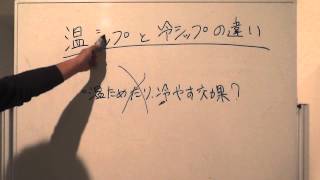 温シップと冷シップの違い
・温ためたり、冷やす効果?